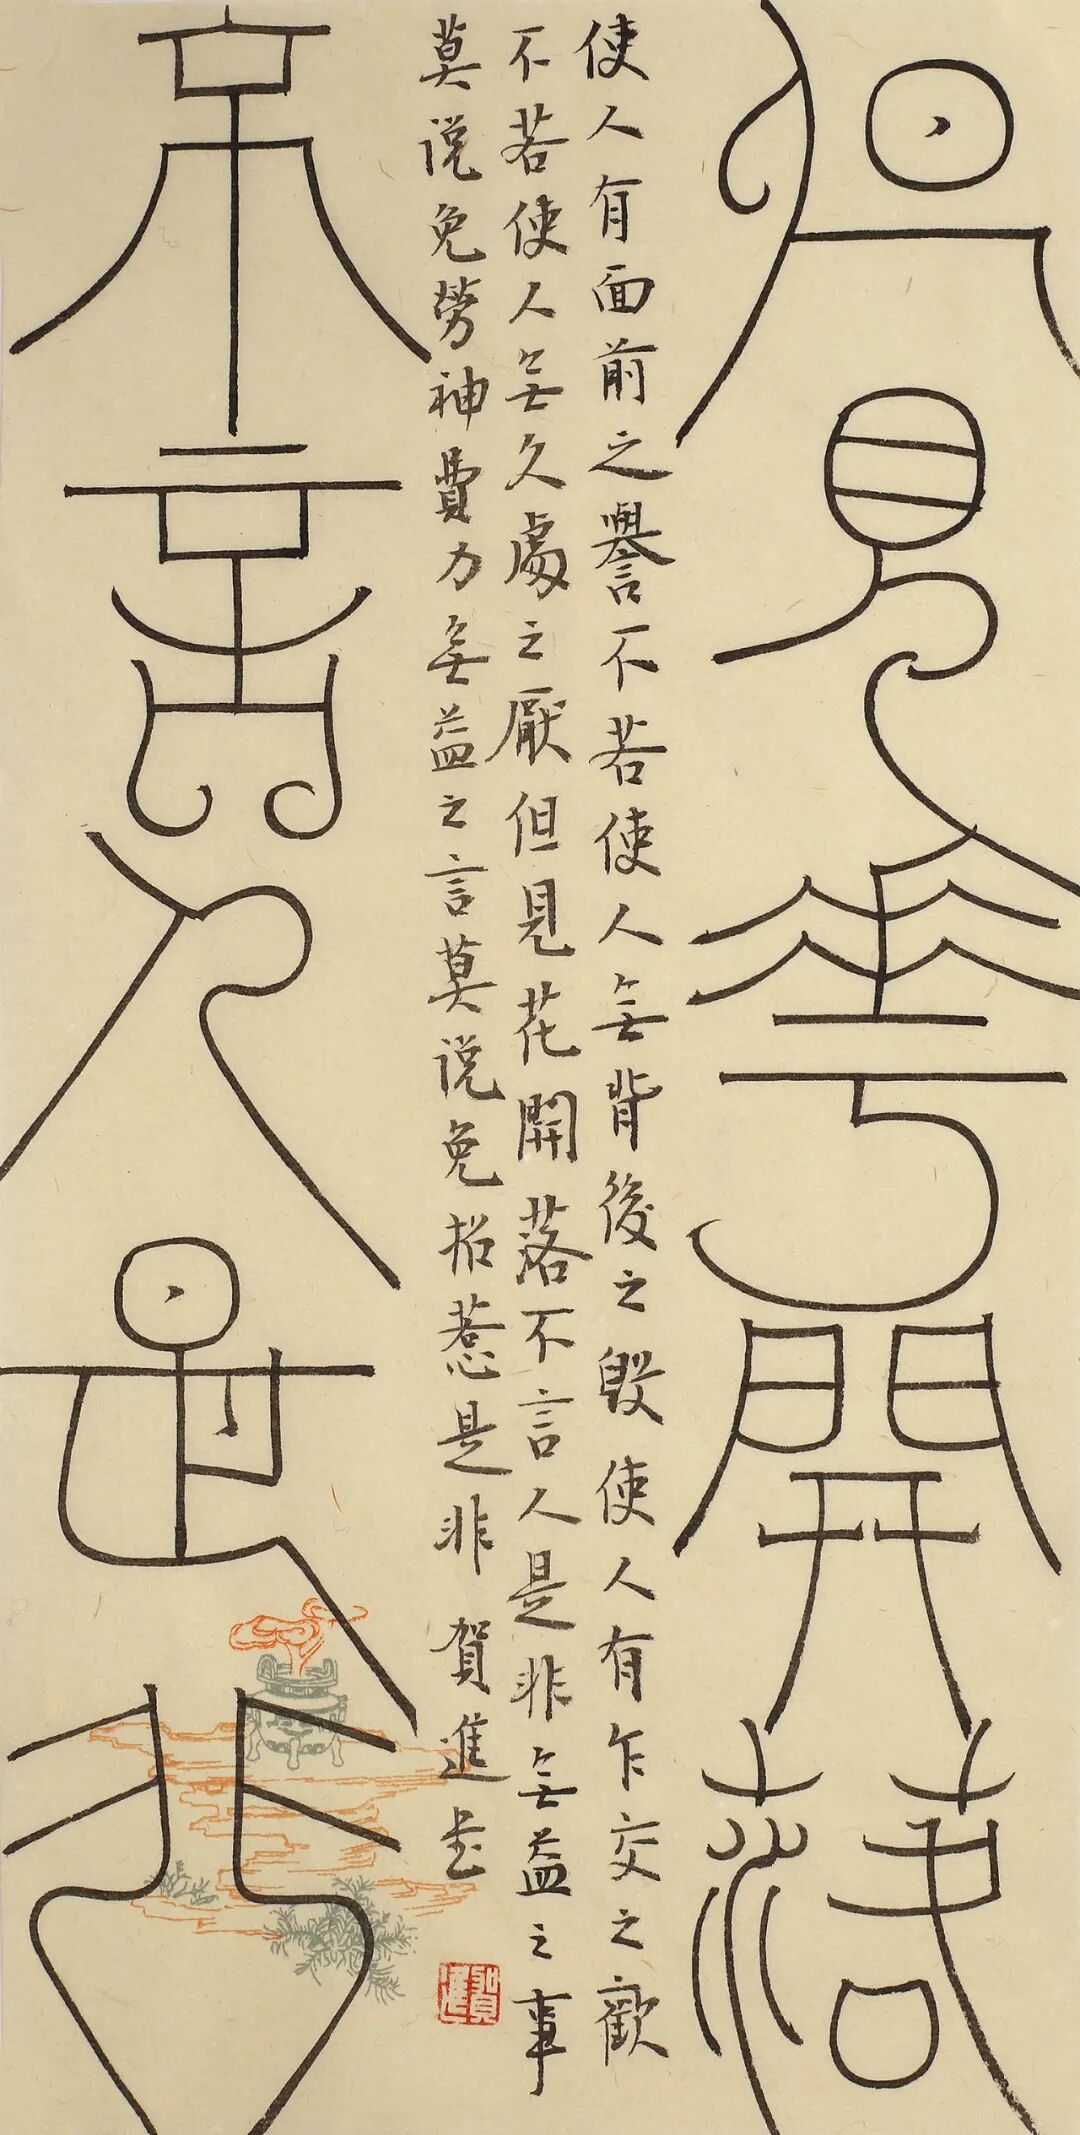 但見花開落
使人有面前之譽不若使人無背後之毀使人有乍交之歡
不若使人無久處之厭但見花開落不言人是非無益之事
莫说免勞神費力無益之言莫说免招惹是非 賀進書
不言人是非
賀進